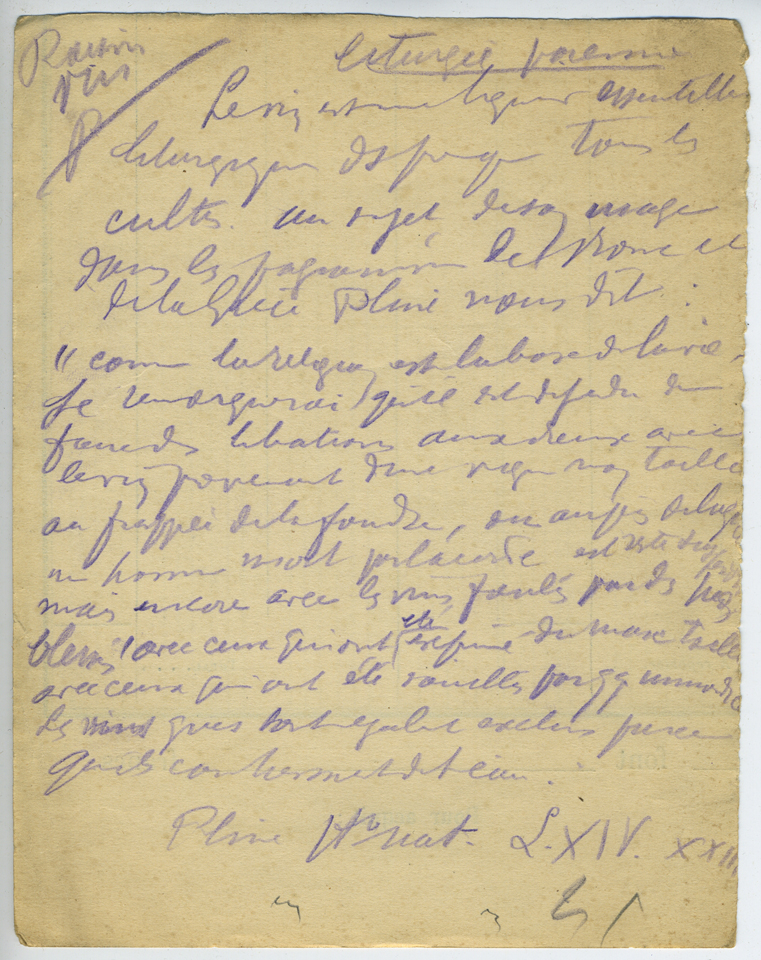 Raisin
vin
Liturgie païenne
Le vin est une liqueur essentielle
liturgique de presque tous les
cultes. au sujet de son usage
dans les paganisme de Rome et
de la Grèce Pline nous dit :
"comme la religion est la base de la vie
je remarquerai qu'il est défendu de
faire des libations aux dieux avec
le vin provenant d'une vigne non taillée
ou frappée de la foudre, ou auprès de laquelle
un homme mort est resté
mais encore avec les vins foulés par des pieds
blessés avec ceux qui ont été exprimé du marc
avec ceux qui ont été souillés par qq
Les vins grecs sont également exclus parce
qu'ils contiennent de l'eau.
Pline H. nat. L. XIV. XXIII